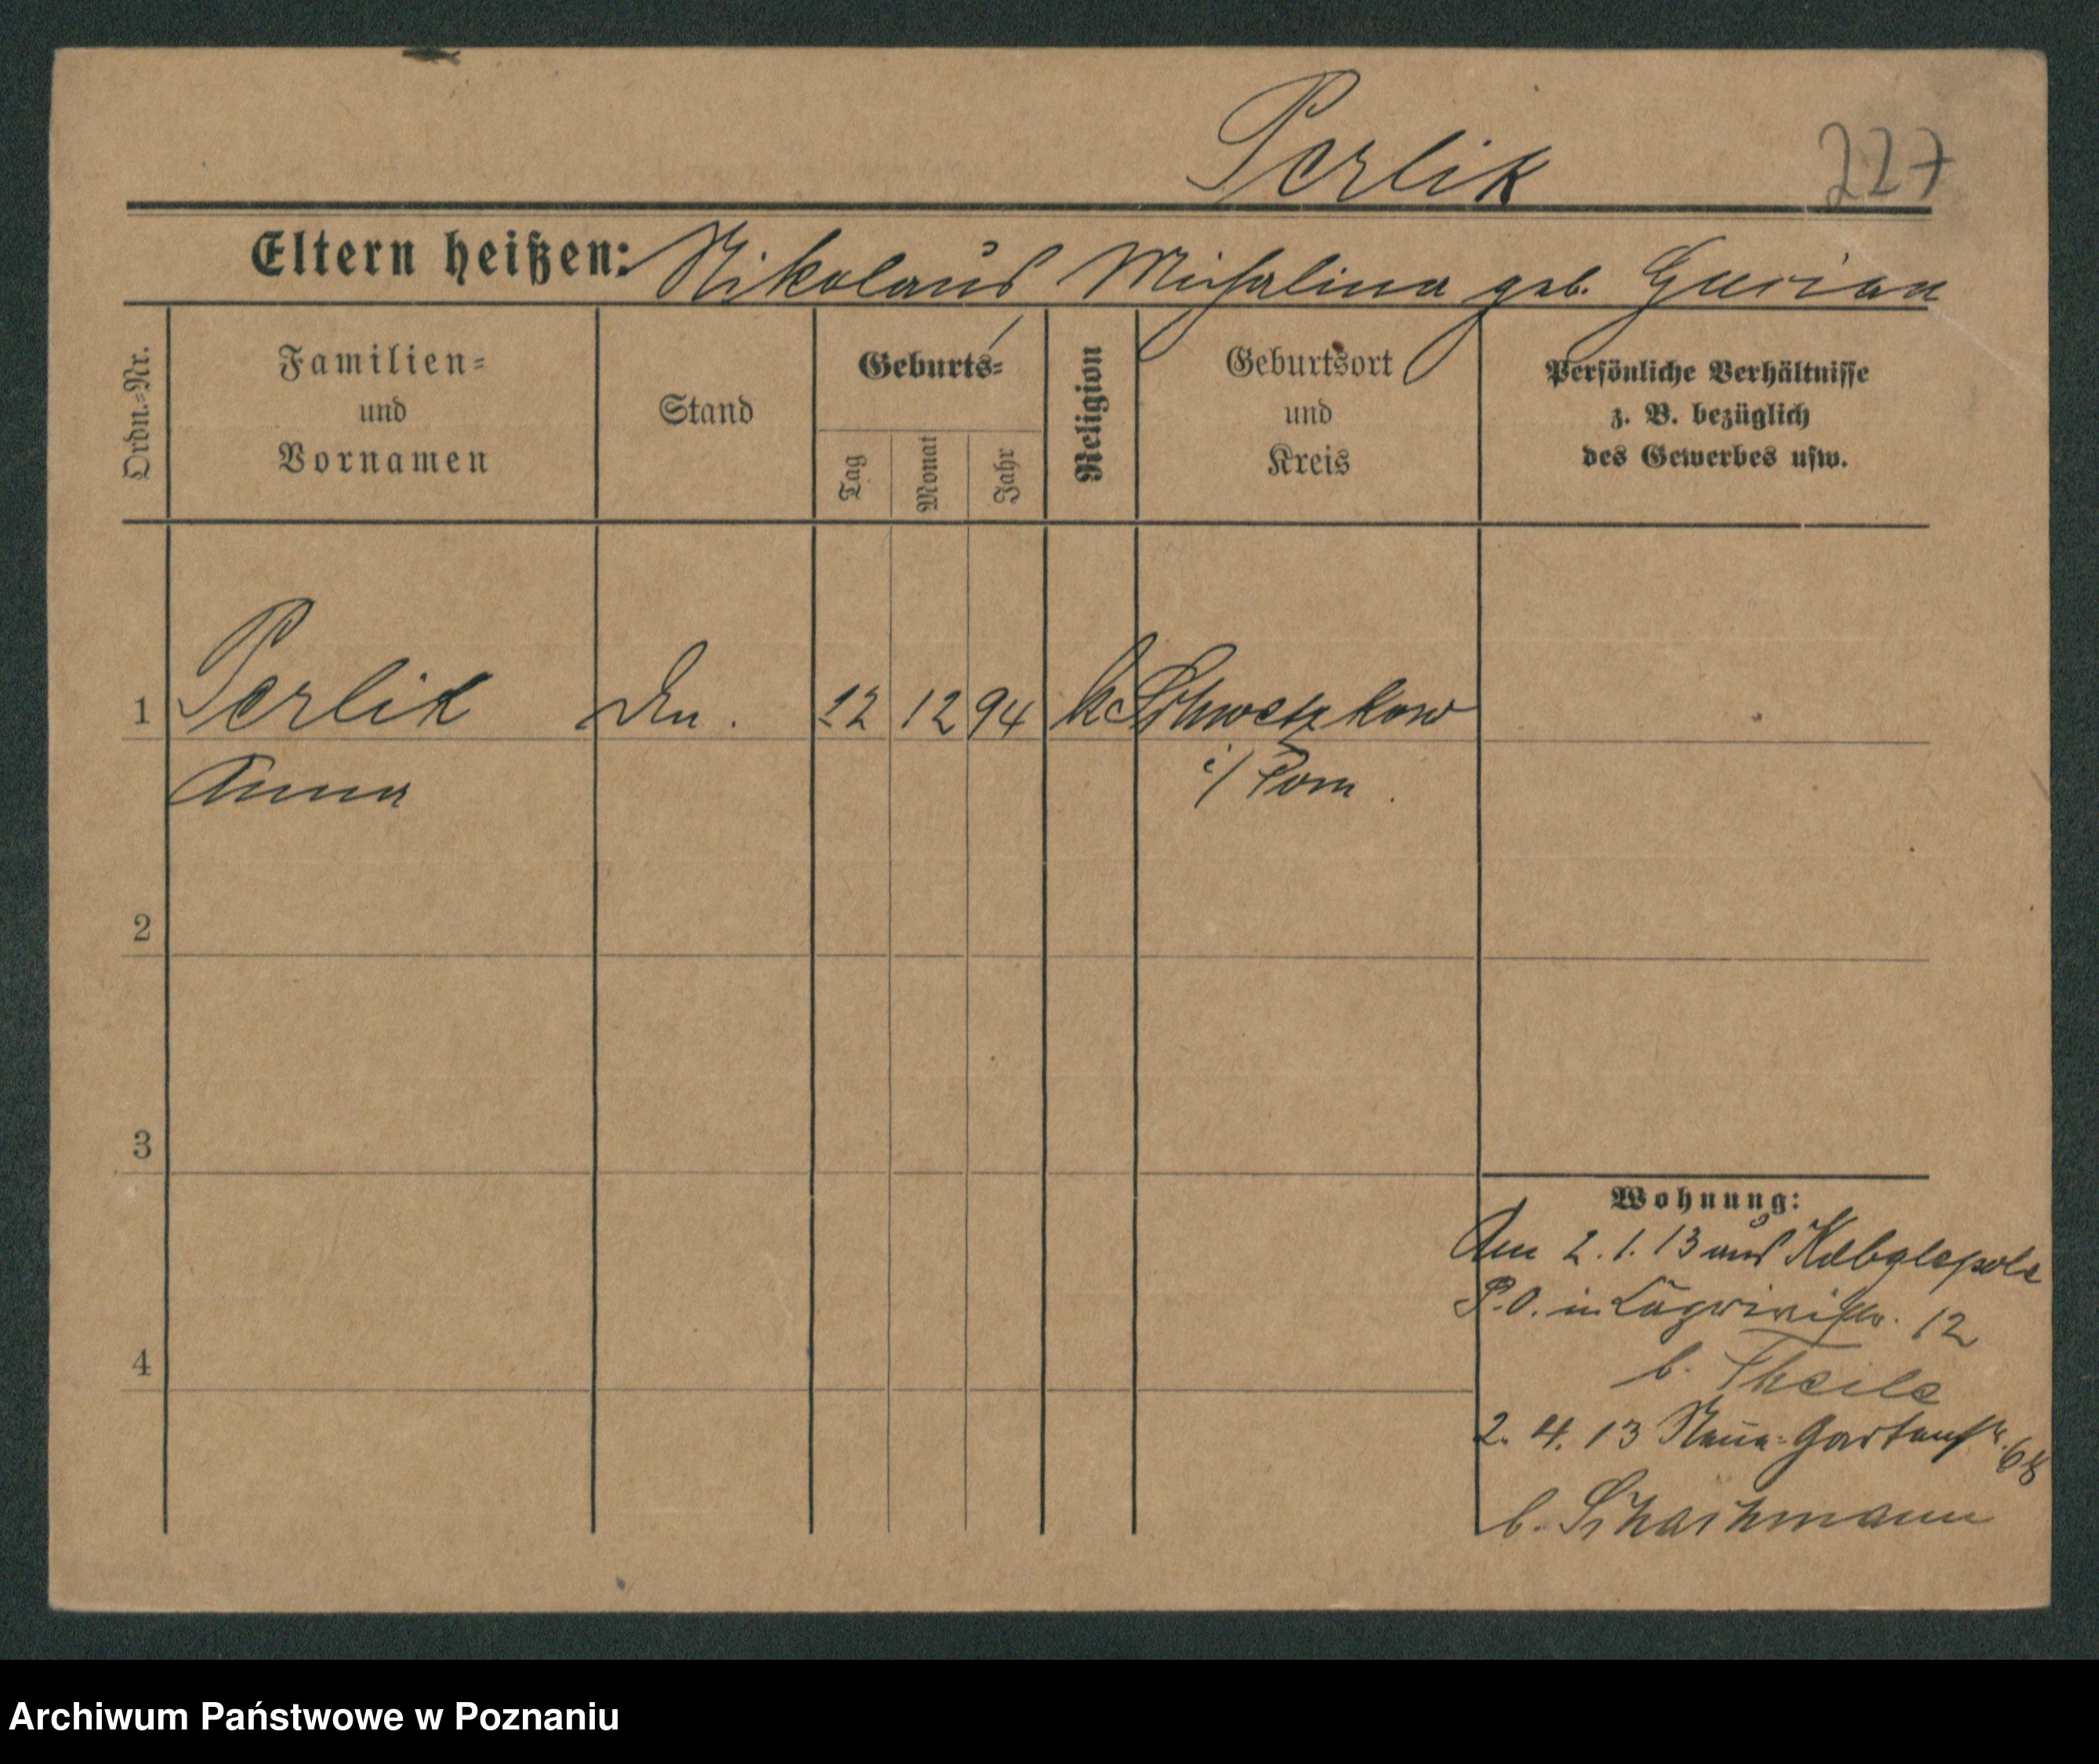 Perlik 227
Eltern heißen: Nikolaus Michalina geb. Gurian
Ordn.-Nr.
Familien-
und
Vornamen
Stand
Geburts-
Tag
Monat
Jahr
Religion
Geburtsort
und
Kreis
Persönliche Verhältnisse
z. B. bezüglich
des Gewerbes usw.
1 Perlik 12 12 94 k Schwetzkow
Anna i/ Pom.
2
3
4
Wohnung:
Am 2. 1. 13 aus
P. O. in 12
b. Theile
2. 4. 13 Neue Gartenstr. 68
b. Schachmann
Archiwum Państwowe w Poznaniu